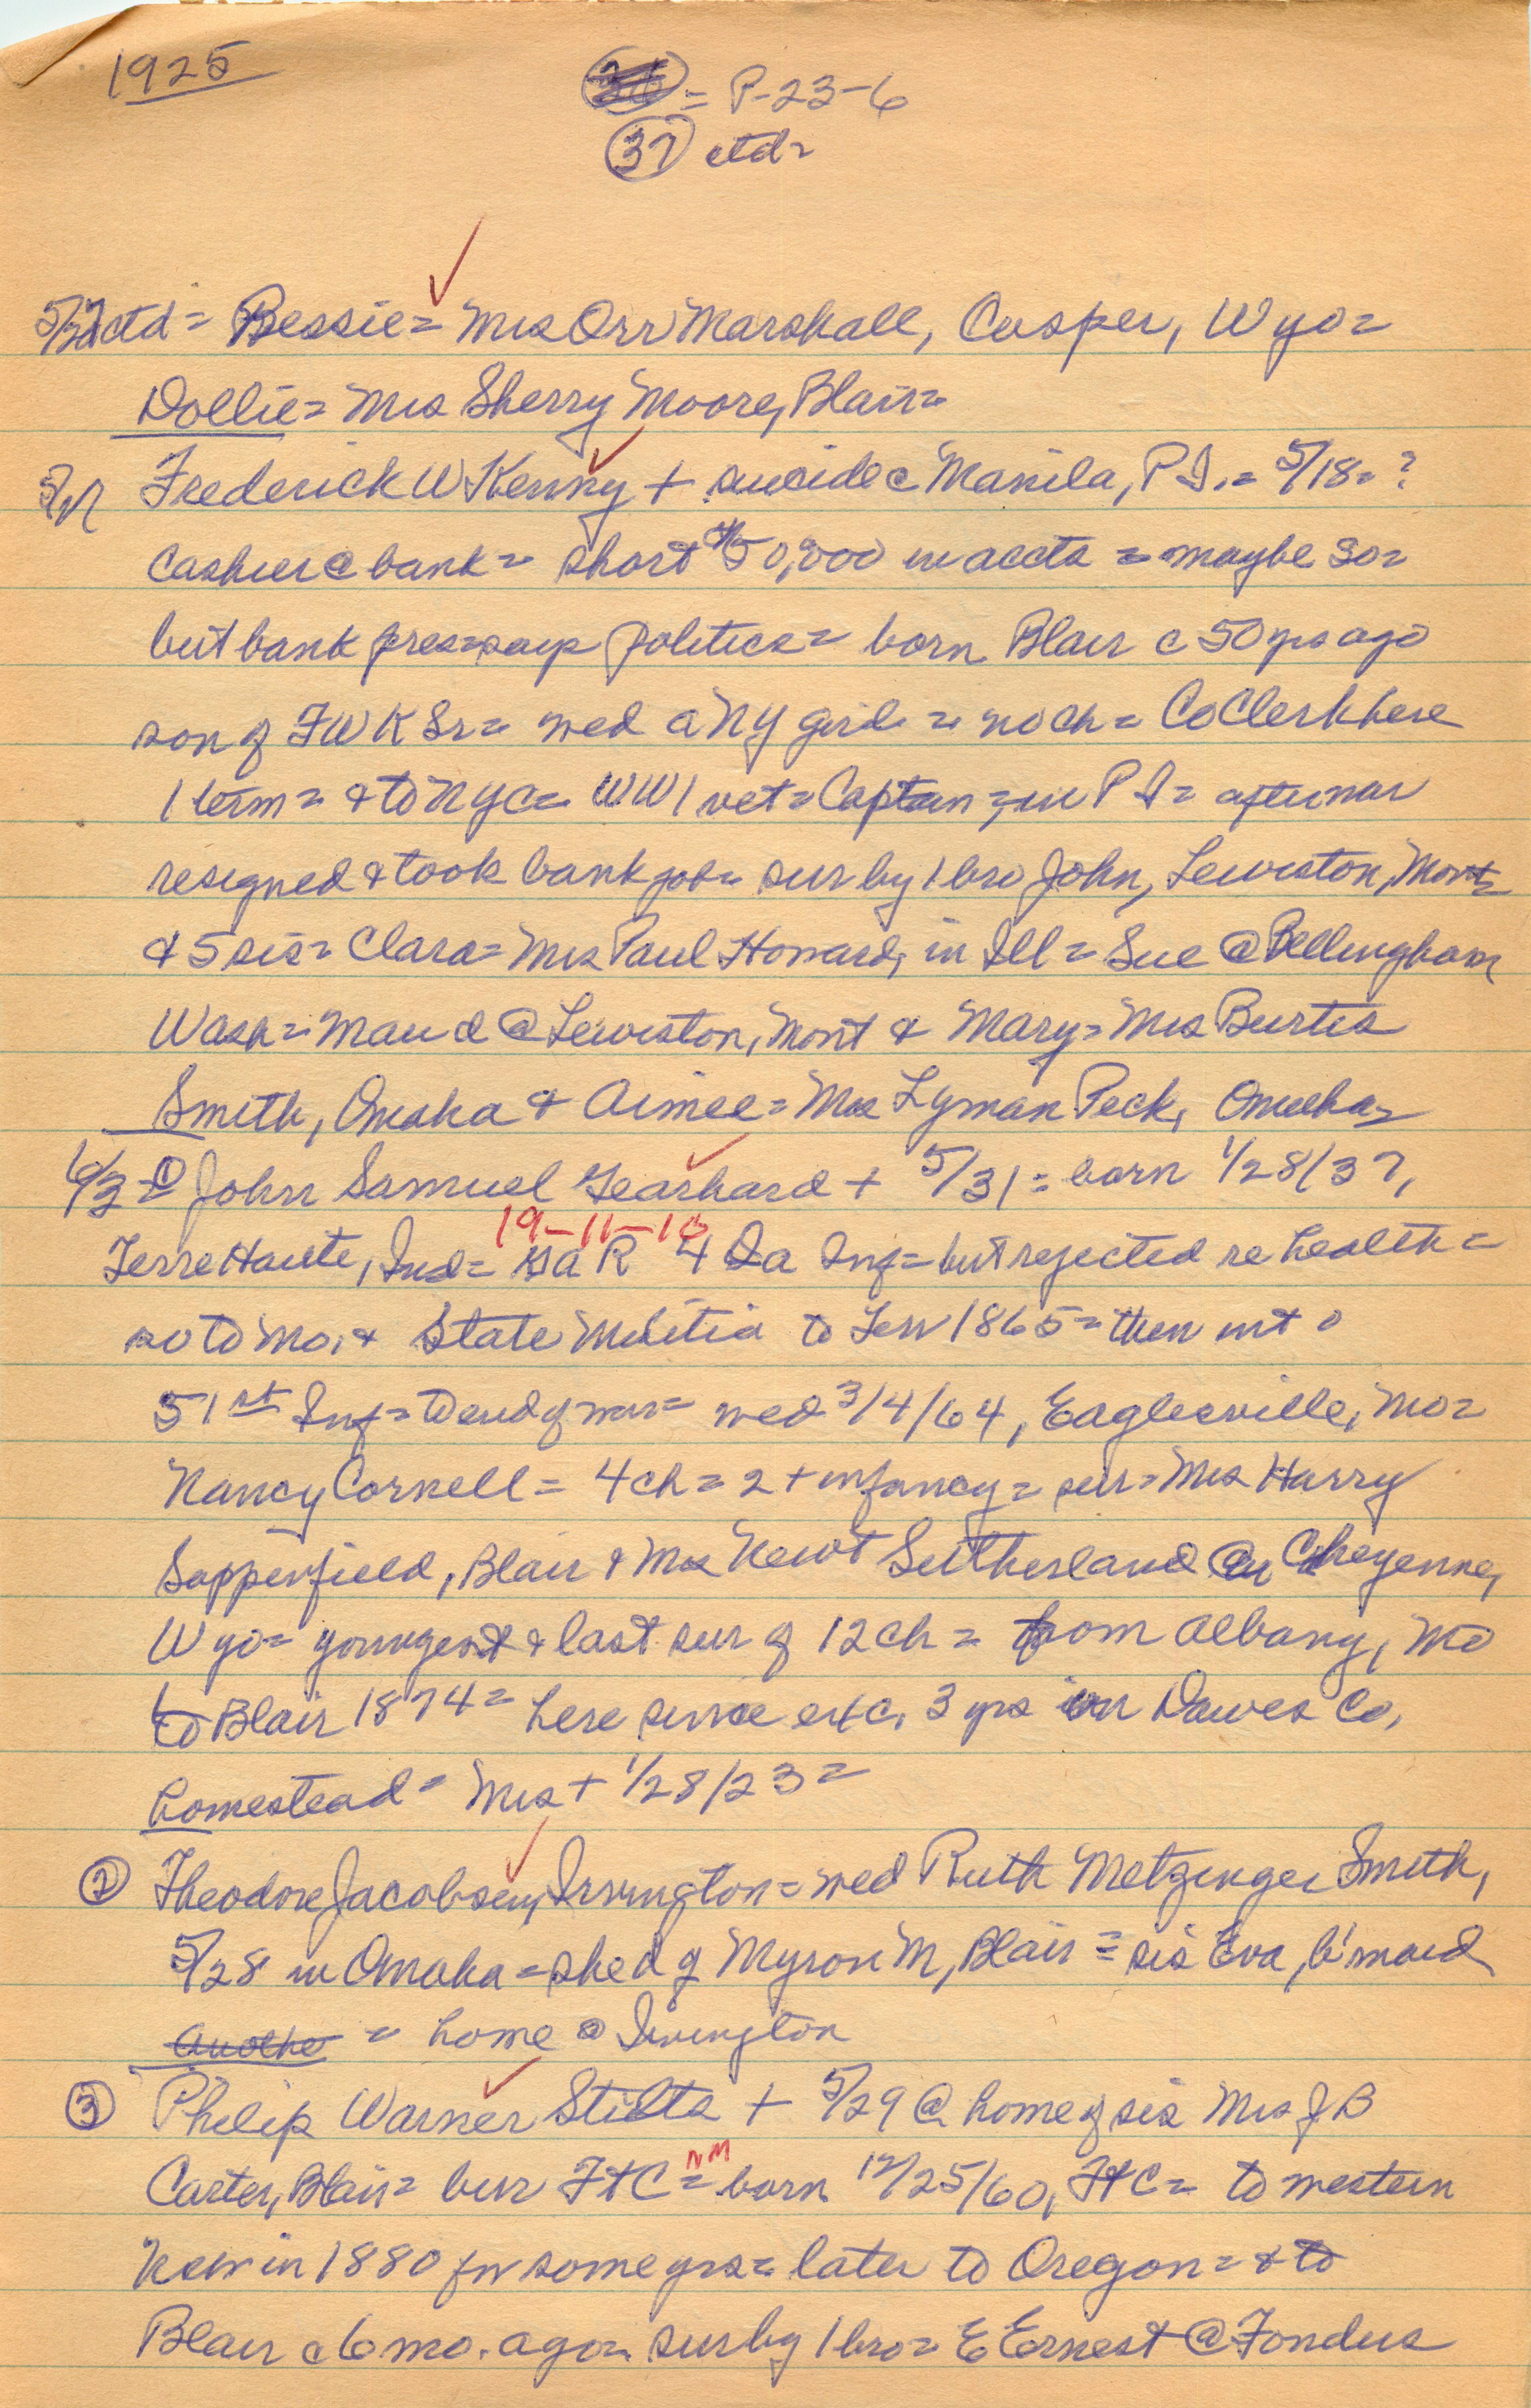 1925
36 = P-23-6
37 ctd=
5/27 ctd = Bessie = Mrs Orr Marshall, Casper, Wyo=
Dollie = Mrs Sherry Moore, Blair=
5/21 Frederick W Kenny + suicide c Manila, P I. = 5/18 = ?
Cashier @ bank = short $50,000 in accts = maybe so=
but bank pres = says politics = born Blair c 50 yrs ago
son of FWK Sr = wed a NY girl = no ch = Co Clerk here
1 term = & to NYC = WW1 vet = Captain = in P I = after war
resigned & took bank job = sur by 1 bro John, Lewiston, Mont
& 5 sis = Clara = Mrs Paul Howard, in Ill = Sue @ Bellingham
Wash = Maud @ Lewiston, Mont & Mary = Mrs Burtis
Smith, Omaha & Aimee = Mrs Lyman Peck, Omaha=
6/3 = ① John Samuel Gearhard + 5/31 = born 1/28/37,
19-11-10
Terre Haute, Ind = GAR 4 Ia Inf = but rejected re health =
so to Mo, & State Militia to Jan 1865 = then into
51st Inf = to end of war = wed 3/4/64, Eaglesville, Mo=
Nancy Cornell = 4 ch = 2 + infancy = sur = Mrs Harry
Sopperfield, Blair & Mrs Newt Sutherland @ Cheyenne,
Wyo = youngest & last sur of 12 ch = from Albany, Mo
to Blair 1874 = here since exc. 3 yrs in Dawes Co,
homestead = Mrs + 1/28/23 =
② Theodore Jacobsen, Irvington = wed Ruth Metzinger Smith,
5/28 in Omaha = she d of Myron M, Blair = sis Eva, b'maid
Another = home @ Irvington
③ Philip Warner Stilts + 5/29 @ home of sis Mrs J B
NM
Carter, Blair = bur FtC = born 12/25/60, FtC = to western
Neb in 1880 for some yrs = later to Oregon = & to
Blair c 6 mo. ago = sur by 1 bro = E Ernest @ Fondus